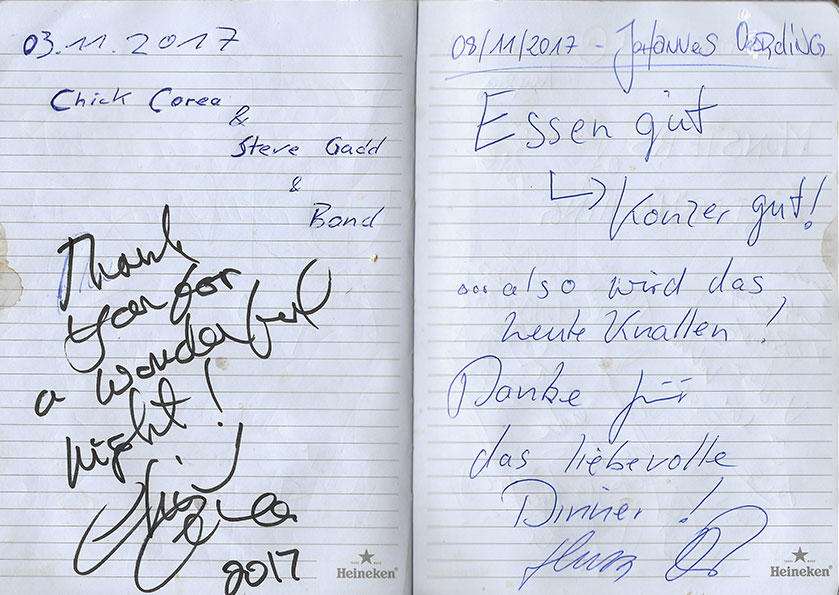 03.11.2017
Chick Corea
&
Steve Gadd
&
Band
Thank
you for
a wonderful
night!
Chick
Corea
2017
Heineken
08/11/2017 - Johannes Oerding
Essen gut
↳ Konzer gut!
... also wird das
heute Knallen!
Danke für
das liebevolle
Dinner!
Heineken